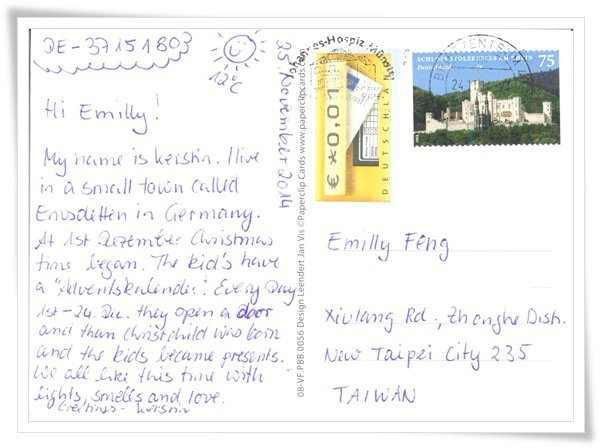 DE-37151803
12°C
25. November 2014
Hi Emilly!
My name is Kerstin. I live
in a small town called
Emsdetten in Germany.
At 1st Dezember Christmas
time began. The kid's have
a "Adventskalender". Every Day
1st-24. Dec. they open a door
and than Christchild was born
and the kids became presents.
We all like this time with
lights, smells and love.
Greetings - Kerstin
08-VF.PBB.0056 Design Leendert Jan Vis ©Paperclip Cards www.paperclipcards.com
Johannes-Hospiz Münster
€ 0,01
DEUTSCHLAND
SCHLOSS STOLZENFELS AM RHEIN
75
Deutschland
24
Emilly Feng
Xiulang Rd., Zhonghe Dist.
New Taipei City 235
TAIWAN